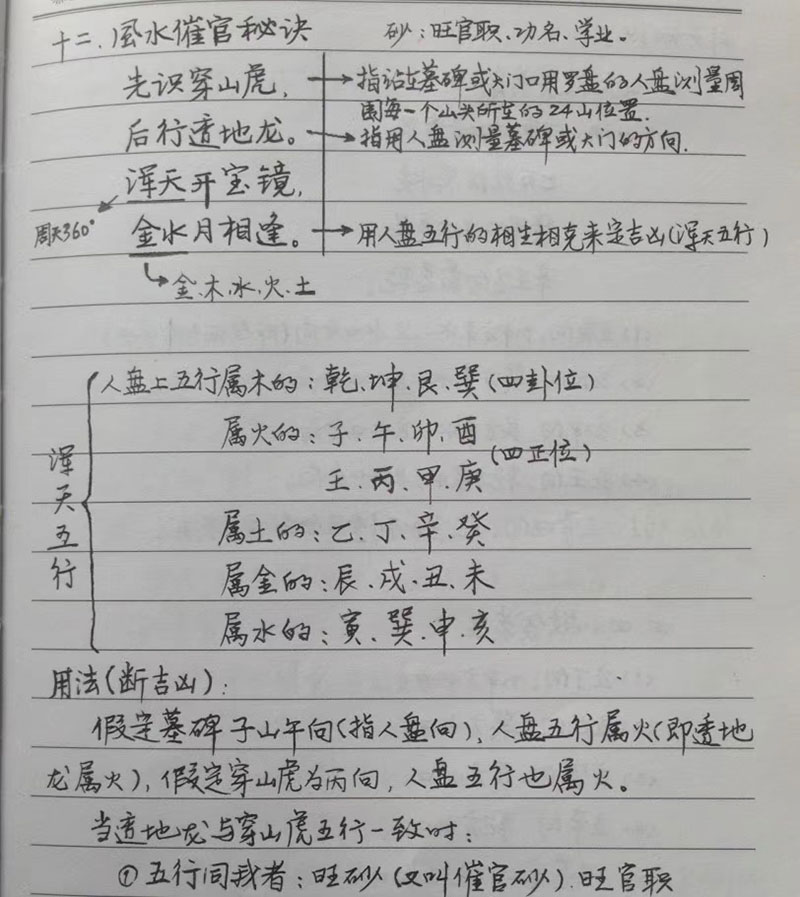 十二.風水催官秘诀 砂：旺官职、功名、学业。
先识穿山虎，→指站在墓碑或大门口用罗盘的人盘测量周
围每一个山头所在的24山位置.
后行透地龙。→指用人盘测量墓碑或大门的方向.
浑天开宝镜，
周天360°
金水月相逢。→用人盘五行的相生相克来定吉凶(浑天五行)
金.木.水.火.土
浑天五行
人盘上五行属木的：乾、坤、艮、巽(四卦位)
属火的：子、午、卯、酉
(四正位)
壬、丙、甲、庚
属土的：乙、丁、辛、癸
属金的：辰、戌、丑、未
属水的：寅、巽、申、亥
用法(断吉凶)：
假定墓碑子山午向(指人盘向)，人盘五行属火(即透地
龙属火)，假定穿山虎为丙向，人盘五行也属火。
当透地龙与穿山虎五行一致时：
①五行同我者：旺砂(又叫催官砂).旺官职